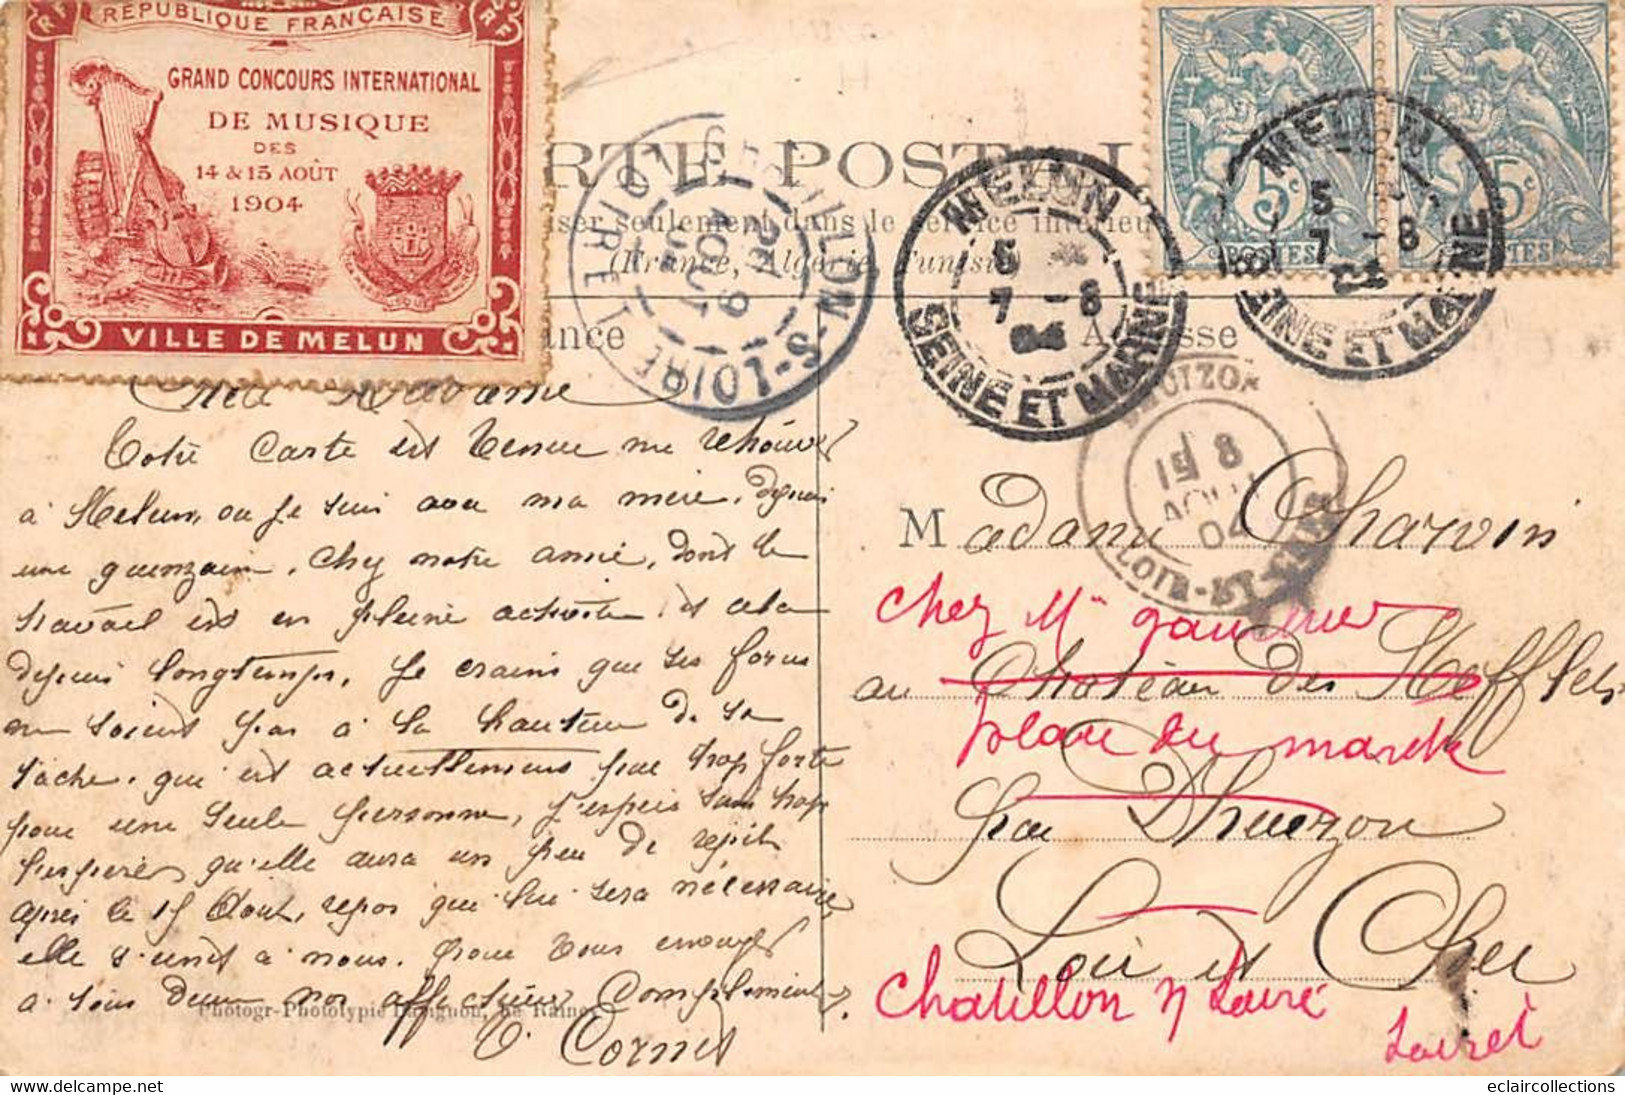 RF
RÉPUBLIQUE FRANÇAISE
RF
GRAND CONCOURS INTERNATIONAL
DE MUSIQUE
DES
14 & 15 AOÛT
1904
VILLE DE MELUN
RTE POSTAL
ser seulement dans le service intérieu
(France, Algérie, Tunisie
ance
Adresse
CHATILLON-S-LOIRE
9
AOUT
04
LOIRET
MELUN
5
7 - 8
04
SEINE ET MARNE
MELUN
5
7 - 8
04
SEINE ET MARNE
5c
POSTES
5c
POSTES
HUIZON
8
AOUT
04
LOIR-ET-CHER
Ma Madame
Votre Carte est Venue me retrouver
à Melun, ou Je suis avec ma mère, depuis
une quinzain, chez notre amie, dont le
travail est en pleine activité, et cela
depuis longtemps, Je crains que ses forces
ne soient pas à la hauteur de sa
tâche, qui est actuellement par trop forte
pour une seule personne, J'espère sans trop
l'espérer qu'elle aura un peu de répit
après le 15 Aout, repos qui lui sera nécessaire,
elle s'unit à nous, pour vous envoyer
à tous deux nos affectueux Compliments.
Photogr-Phototypie
Cornet
Madame Charvin
chez Mr
au Château des
place du marché
par Dhuizon
Loir et Cher
Chatillon s/ Loire
Loiret
eclaircollections